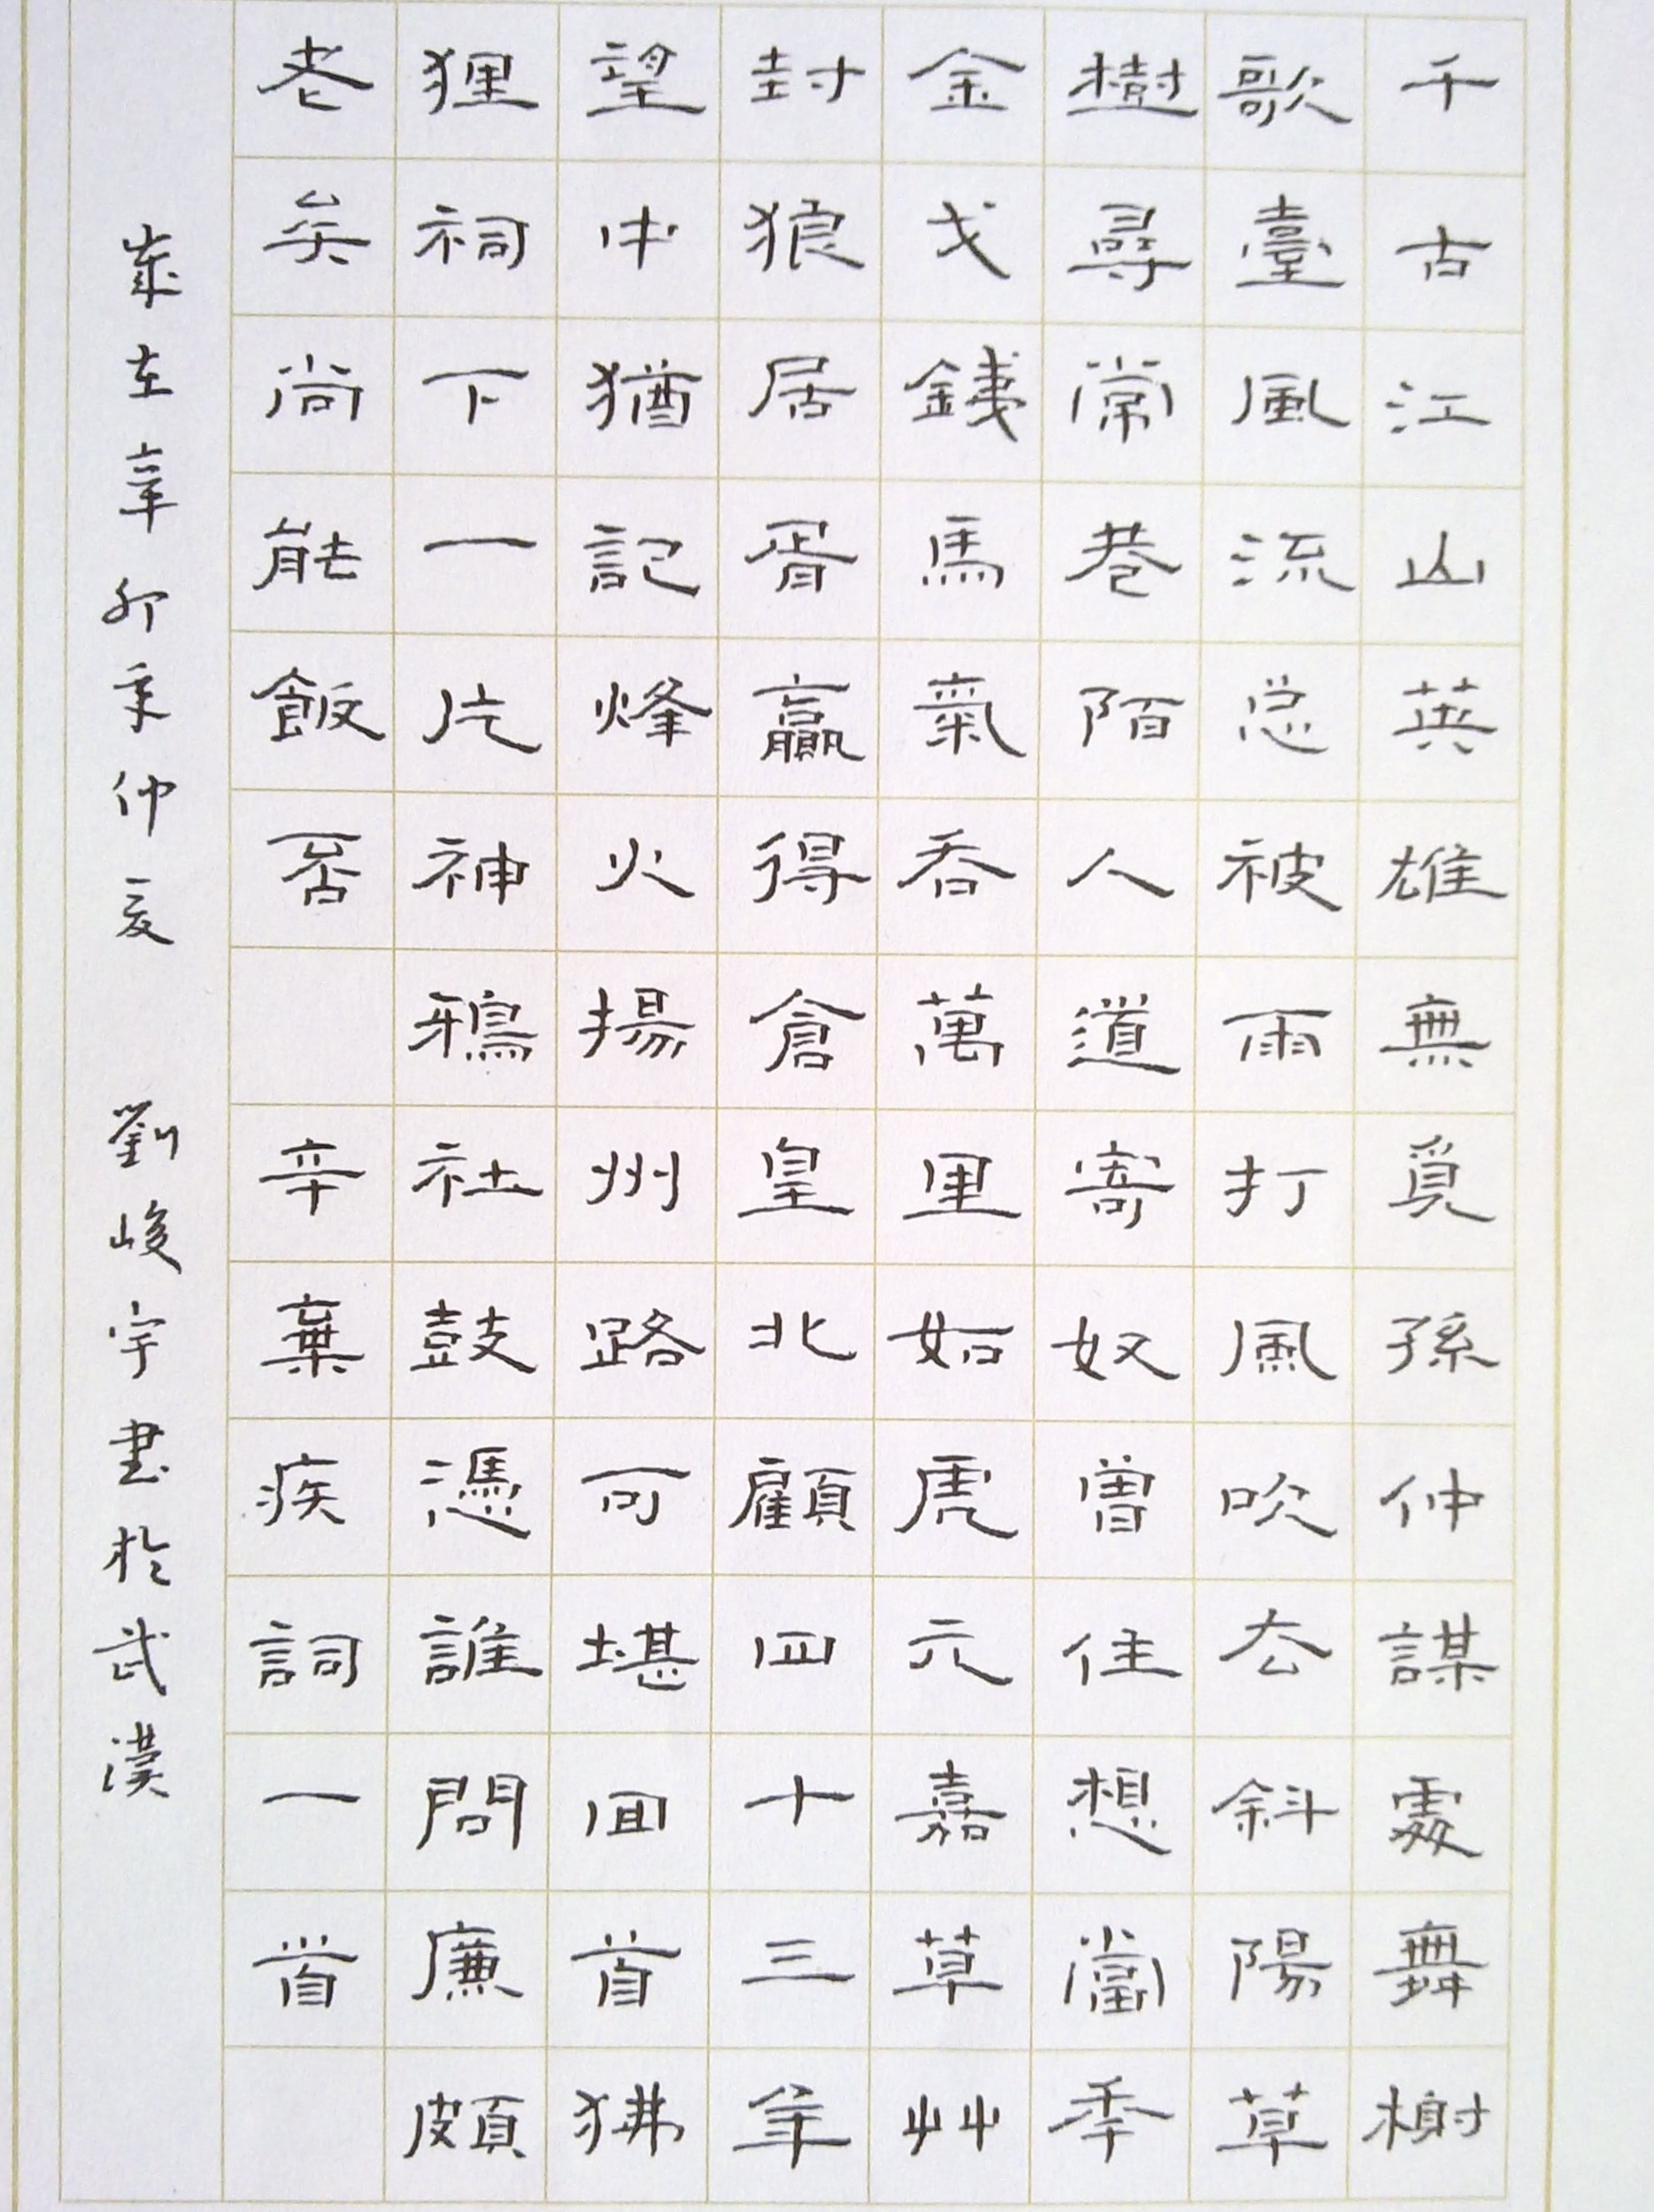 千古江山英雄無覓孫仲謀處舞榭
歌臺風流总被雨打風吹去斜陽草
樹尋常巷陌人道寄奴曾住想當季
金戈鐵馬氣吞萬里如虎元嘉草艸
封狼居胥贏得倉皇北顧四十三年
望中猶記烽火揚州路可堪回首狒
狸祠下一片神鴉社鼓憑誰問廉頗
老矣尚能飯否 辛棄疾詞一首
歲在辛卯年仲夏 劉峻宇書於武漢